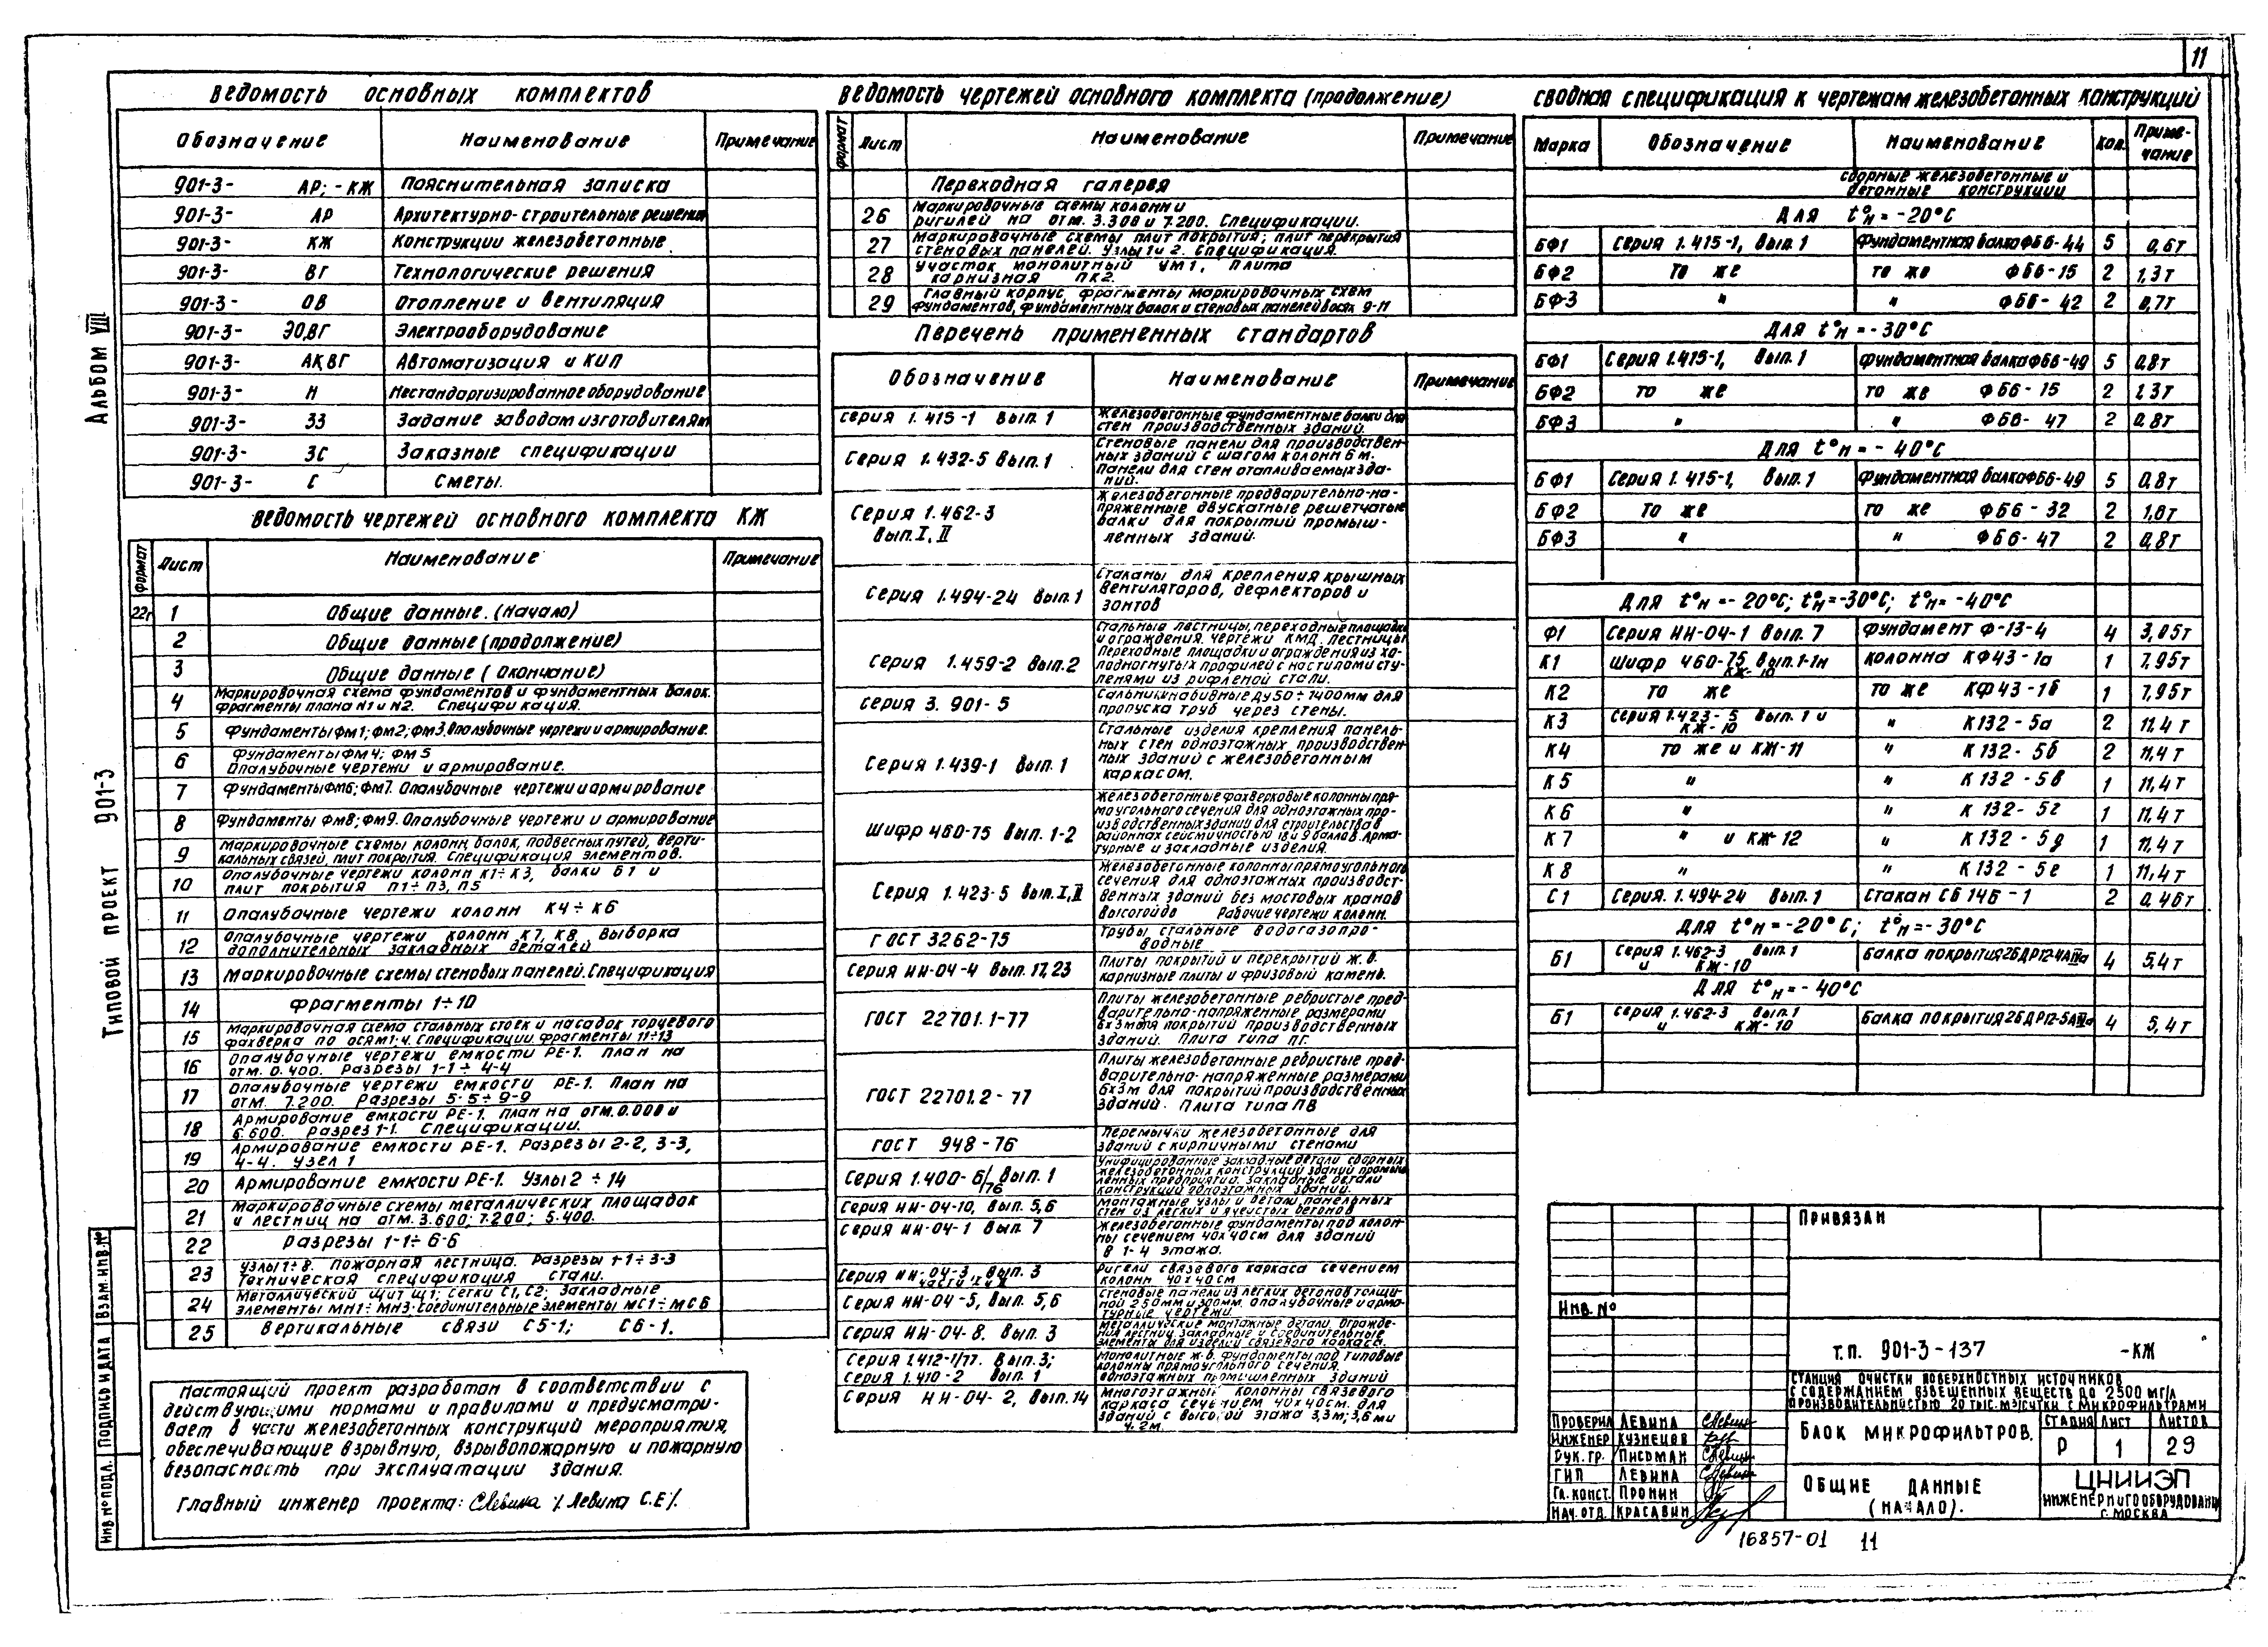 11
Альбом VIII
Типовой проект 901-3
Ведомость основных комплектов
Обозначение Наименование Примечание
901-3- АР; -КЖ Пояснительная записка
901-3- АР Архитектурно-строительные решения
901-3- КЖ Конструкции железобетонные.
901-3- ВГ Технологические решения
901-3- ОВ Отопление и вентиляция
901-3- ЭО,ВГ Электрооборудование
901-3- АК,ВГ Автоматизация и КИП
901-3- Н Нестандартизированное оборудование
901-3- ЗЗ Задание заводам изготовителям
901-3- ЗС Заказные спецификации
901-3- С Сметы.
Ведомость чертежей основного комплекта КЖ
Формат Лист Наименование Примечание
22г 1 Общие данные. (Начало)
2 Общие данные (продолжение)
3 Общие данные (Окончание)
4 Маркировочная схема фундаментов и фундаментных балок.
фрагменты плана N1 и N2. Спецификация.
5 Фундаменты Фм1; Фм2; Фм3. Опалубочные чертежи и армирование.
6 Фундаменты Фм4; Фм5
Опалубочные чертежи и армирование.
7 Фундаменты Фм6; Фм7. Опалубочные чертежи и армирование
8 Фундаменты Фм8; Фм9. Опалубочные чертежи и армирование
9 Маркировочные схемы колонн, балок, подвесных путей, верти-
кальных связей, плит покрытия. Спецификация элементов.
10 Опалубочные чертежи колонн К1÷К3, балки Б1 и
плит покрытия П1÷П3, П5
11 Опалубочные чертежи колонн К4÷К6
12 Опалубочные чертежи колонн К7, К8, выборка
дополнительных закладных деталей
13 Маркировочные схемы стеновых панелей. Спецификация
14 Фрагменты 1÷10
15 Маркировочная схема стальных стоек и насадок торцевого
фахверка по осям 1; 4. Спецификации. фрагменты 11÷13
16 Опалубочные чертежи емкости РЕ-1. План на
отм. 0.400. Разрезы 1-1÷4-4
17 Опалубочные чертежи емкости РЕ-1. План на
отм. 7.200. Разрезы 5-5÷9-9
18 Армирование емкости РЕ-1. План на отм. 0.000 и
6.600. Разрез 1-1. Спецификации.
19 Армирование емкости РЕ-1. Разрезы 2-2, 3-3,
4-4. Узел 1
20 Армирование емкости РЕ-1. Узлы 2÷14
21 Маркировочные схемы металлических площадок
и лестниц на отм. 3.600; 7.200; 5.400.
22 Разрезы 1-1÷6-6
23 Узлы 1÷8. Пожарная лестница. Разрезы 1-1÷3-3
Техническая спецификация стали.
24 Металлический щит Щ1; сетки С1, С2; Закладные
элементы МН1÷МН3; соединительные элементы МС1÷МС6
25 Вертикальные связи С5-1; С6-1.
Настоящий проект разработан в соответствии с
действующими нормами и правилами и предусматри-
вает в части железобетонных конструкций мероприятия,
обеспечивающие взрывную, взрывопожарную и пожарную
безопасность при эксплуатации здания.
Главный инженер проекта: /Левина С.Е/.
Инв. № подл. Подпись и дата Взам. инв. №
Ведомость чертежей основного комплекта (продолжение)
Формат Лист Наименование Примечание
Переходная галерея
26 Маркировочные схемы колонн и
ригилей на отм. 3.300 и 7.200. Спецификации.
27 Маркировочные схемы плит покрытия; плит перекрытия
стеновых панелей. Узлы 1 и 2. Спецификация.
28 Участок монолитный УМ1, Плита
карнизная ПК2.
29 Главный корпус. фрагменты маркировочных схем
фундаментов, фундаментных балок и стеновых панелей в осях 9-11
Перечень примененных стандартов
Обозначение Наименование Примечание
Серия 1.415-1 Вып. 1 Железобетонные фундаментные балки для
стен производственных зданий.
Серия 1.432-5 Вып. 1 Стеновые панели для производствен-
ных зданий с шагом колонн 6 м.
Панели для стен отапливаемых зда-
ний.
Серия 1.462-3
Вып. I, II Железобетонные предварительно-на-
пряженные двускатные решетчатые
балки для покрытий промыш-
ленных зданий.
Серия 1.494-24 Вып. 1 Стаканы для крепления крышных
вентиляторов, дефлекторов и
зонтов
Серия 1.459-2 Вып. 2 Стальные лестницы, переходные площадки
и ограждения. Чертежи КМД. Лестницы
Переходные площадки и ограждения из хо-
лодногнутых профилей с настилом и сту-
пенями из рифленой стали.
Серия 3.901-5 Сальники набивные ду 50÷1400 мм для
пропуска труб через стены.
Серия 1.439-1 Вып. 1 Стальные изделия крепления панель-
ных стен одноэтажных производствен-
ных зданий с железобетонным
каркасом.
Шифр 460-75 Вып. 1-2 Железобетонные фахверковые колонны пря-
моугольного сечения для одноэтажных про-
изводственных зданий для строительства в
районах сейсмичностью и 9 баллов. Арма-
турные и закладные изделия.
Серия 1.423-5 Вып. I, II Железобетонные колонны прямоугольного
сечения для одноэтажных производст-
венных зданий без мостовых кранов
высотой до Рабочие чертежи колонн.
ГОСТ 3262-75 Трубы стальные водогазопро-
водные
Серия ИИ-04-4 Вып. 17, 23 Плиты покрытий и перекрытий ж.б.
карнизные плиты и фризовый камень.
ГОСТ 22701.1-77 Плиты железобетонные ребристые пред-
варительно-напряженные размерами
6х3м для покрытий производственных
зданий. Плита типа ПГ.
ГОСТ 22701.2-77 Плиты железобетонные ребристые пред-
варительно-напряженные размерами
6х3м для покрытий производственных
зданий. Плита типа ПВ
ГОСТ 948-76 Перемычки железобетонные для
зданий с кирпичными стенами
Серия 1.400-6/76 Вып. 1 Унифицированные закладные детали сборных
железобетонных конструкций зданий промыш-
ленных предприятий. Закладные детали
конструкций одноэтажных зданий.
Серия ИИ-04-10, Вып. 5,6 Монтажные узлы и детали панельных
стен из легких и ячеистых бетонов
Серия ИИ-04-1 Вып. 7 Железобетонные фундаменты под колон-
ны сечением 40х40см для зданий
в 1-4 этажа.
Серия ИИ-04-3, Вып. 3
части I и II Ригели связевого каркаса сечением
колонн 40х40см
Серия ИИ-04-5, Вып. 5,6 Стеновые панели из легких бетонов толщи-
ной 250мм и 300мм. Опалубочные и арма-
турные чертежи.
Серия ИИ-04-8. Вып. 3 Металлические монтажные детали. Огражде-
ния лестниц, закладные и соединительные
элементы для изделий связевого каркаса.
Серия 1.412-1/77. Вып. 3;
Серия 1.410-2 Вып. 1 Монолитные ж.б. фундаменты под типовые
колонны прямоугольного сечения.
одноэтажных промышленных зданий
Серия ИИ-04-2, Вып. 14 Многоэтажные колонны связевого
каркаса сечением 40х40см. для
зданий с высотой этажа 3,3м; 3,6м и
4.2м.
Сводная спецификация к чертежам железобетонных конструкций
Марка Обозначение Наименование Кол. Приме-
чание
Сборные железобетонные и
бетонные конструкции
Для t°н = -20°С
БФ1 Серия 1.415-1, Вып. 1 Фундаментная балка ФБ6-44 5 0,6т
БФ2 То же то же ФБ6-15 2 1,3т
БФ-3 " " ФБ6-42 2 0,7т
Для t°н = -30°С
БФ1 Серия 1.415-1, Вып. 1 Фундаментная балка ФБ6-49 5 0,8т
БФ2 то же то же ФБ6-15 2 1,3т
БФ3 " " ФБ6-47 2 0,8т
Для t°н = -40°С
БФ1 Серия 1.415-1, Вып. 1 Фундаментная балка ФБ6-49 5 0,8т
БФ2 то же то же ФБ6-32 2 1,6т
БФ3 " " ФБ6-47 2 0,8т
Для t°н = -20°С; t°н = -30°С; t°н = -40°С
Ф1 Серия ИИ-04-1 Вып. 7 Фундамент Ф-13-4 4 3,05т
К1 Шифр 460-75 Вып. 1-1н
КЖ-10 Колонна КФ43-1а 1 7,95т
К2 то же то же КФ43-1б 1 7,95т
К3 Серия 1.423-5 Вып. 1 и
КЖ-10 " К132-5а 2 11,4т
К4 то же и КЖ-11 " К132-5б 2 11,4т
К5 " " К132-5в 1 11,4т
К6 " " К132-5г 1 11,4т
К7 " и КЖ-12 " К132-5д 1 11,4т
К8 " " К132-5е 1 11,4т
С1 Серия. 1.494-24 Вып. 1 Стакан СБ 14Б-1 2 0,46т
Для t°н = -20°С; t°н = -30°С
Б1 Серия 1.462-3 Вып. 1
и КЖ-10 Балка покрытия 4 5,4т
Для t°н = -40°С
Б1 Серия 1.462-3 Вып. 1
и КЖ-10 Балка покрытия 4 5,4т
Привязан
Инв. №
Т.П. 901-3-137 -КЖ
Станция очистки поверхностных источников
с содержанием взвешенных веществ до 2500 мг/л
производительностью 20 тыс. м3/сутки с микрофильтрами
Проверил Левина
Инженер Кузнецов
Рук. гр. Письман
ГИП Левина
Гл. конст. Пронин
Нач. отд. Красавин
Блок микрофильтров.
Стадия Лист Листов
Р 1 29
Общие данные
(начало).
ЦНИИЭП
инженерного оборудования
г. Москва
16857-01 11